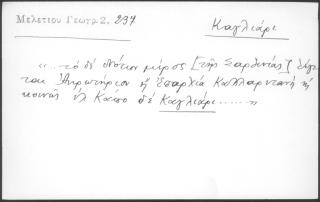 Μελετίου Γεωγρ 2. 237
Καγλιάρι
«... τὸ δὲ Νότιον μέρος [τῆς Σαρδινίας] λέγε
ται Ἀκρωτήριον ἢ Ἐπαρχία Καλλαριτανὴ ἢ
κοινῶς Κάπο δὲ Καγλιάρι ...... »